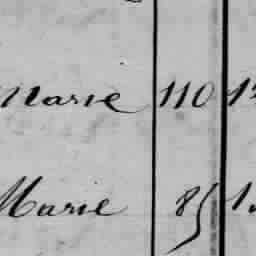 Marie 110
Marie 85